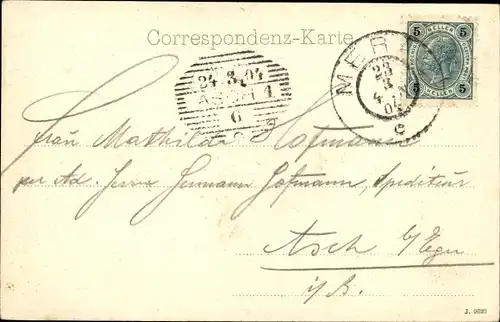 Correspondenz-Karte
5 HELLER 5
5 HELLER 5
MER
23
3
4
04
c
24.3.04
ASCH 1
6
Frau Mathilde Hofmann
per Ad. Herrn Hermann Hofmann, Spediteur
Asch b/Eger
i/B.